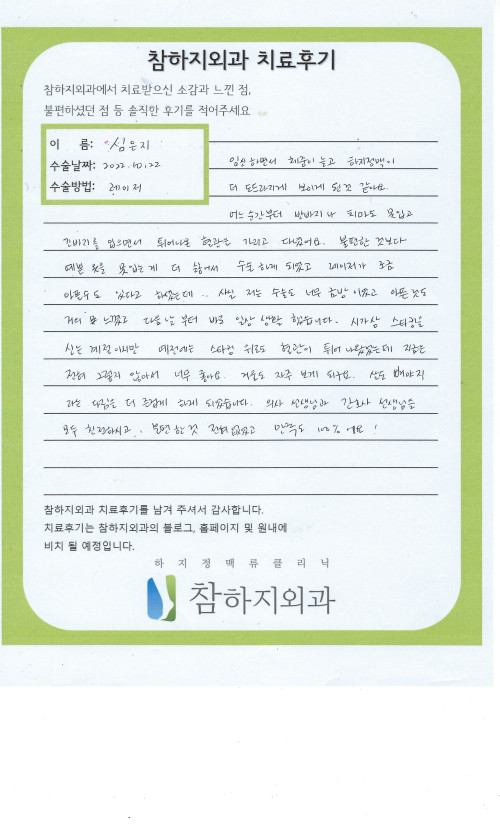 참하지외과 치료후기
참하지외과에서 치료받으신 소감과 느낀 점,
불편하셨던 점 등 솔직한 후기를 적어주세요
이 름: 심은지
수술날짜: 2022.10.22
수술방법: 레이저
임신하면서 체중이 늘고 하지정맥이
더 도드라지게 보이게 된것 같아요.
어느순간부터 반바지나 치마도 못입고
긴바지를 입으면서 튀어나온 혈관은 가리고 다녔어요. 불편한 것보다
예쁜 옷을 못입는게 더 싫어서 수술하게 되었고 레이저가 조금
아플수도 있다고 하셨는데.. 사실 저는 수술도 너무 금방이었고 아픈것도
거의 못느꼈고 다음날부터 바로 일상생활 했습니다. 시기상 스타킹을
신는 계절이지만 예전에는 스타킹 위로도 혈관이 튀어나왔었는데 지금은
전혀 그렇지 않아서 너무 좋아요. 거울도 자주 보게 되구요. 살도 빼야지
라는 다짐을 더 즐겁게 하게 되었습니다. 의사 선생님과 간호사 선생님들
모두 친절하시고, 불편한것 전혀 없었고 만족도 100% 에요!
참하지외과 치료후기를 남겨 주셔서 감사합니다.
치료후기는 참하지외과의 블로그, 홈페이지 및 원내에
비치 될 예정입니다.
하지정맥류클리닉
참하지외과